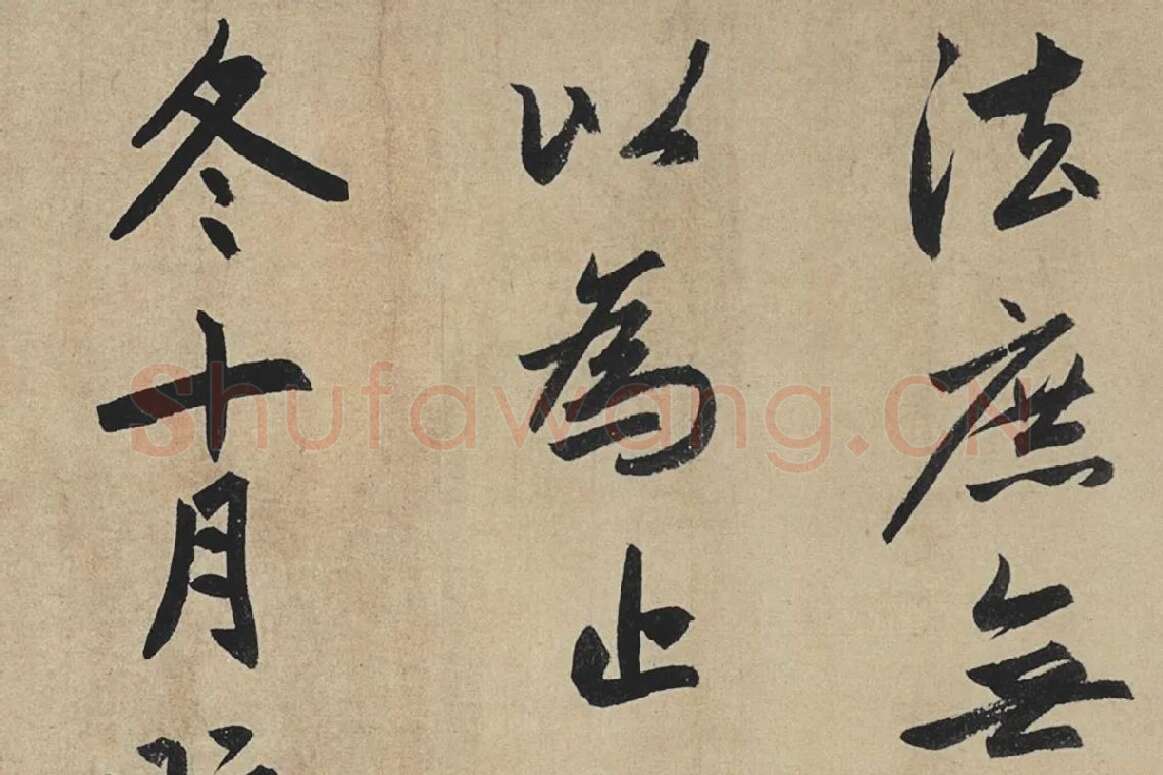 法庶無
以為止
冬十月
Shufawang.CN